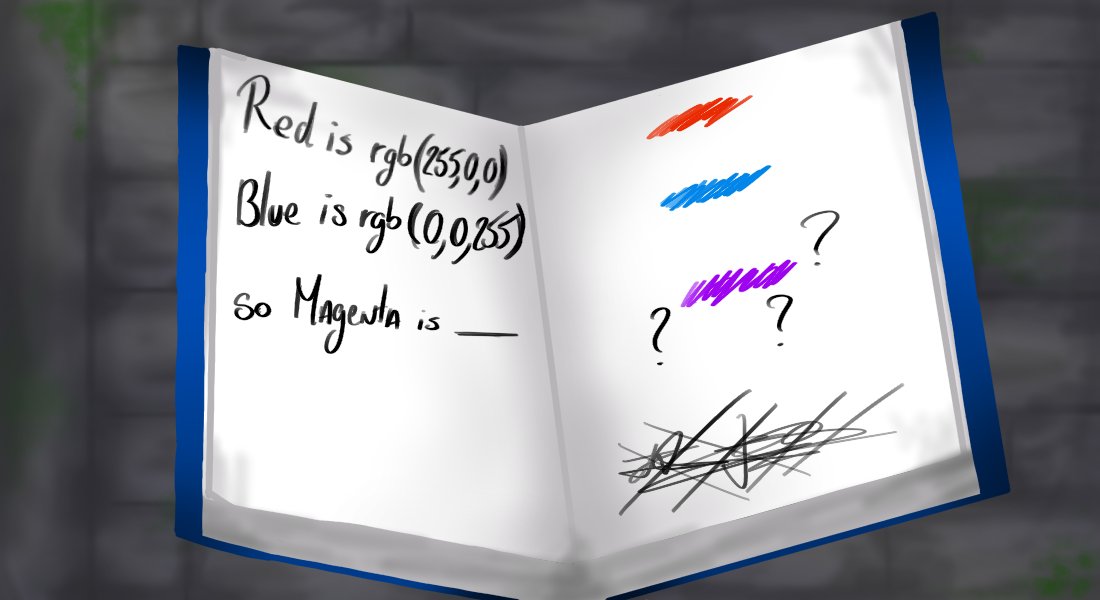 Red is rgb(255,0,0)
Blue is rgb(0,0,255)
so Magenta is ___
?
? ?